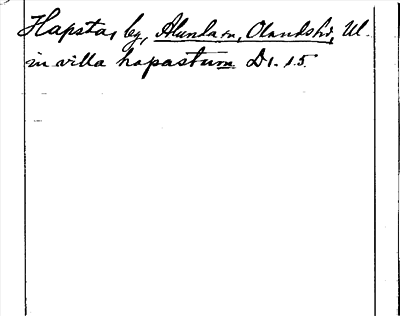 Hapsta, by, Alunda sn, Olands hd, Ul.
in villa hapastum D1. s. 5.